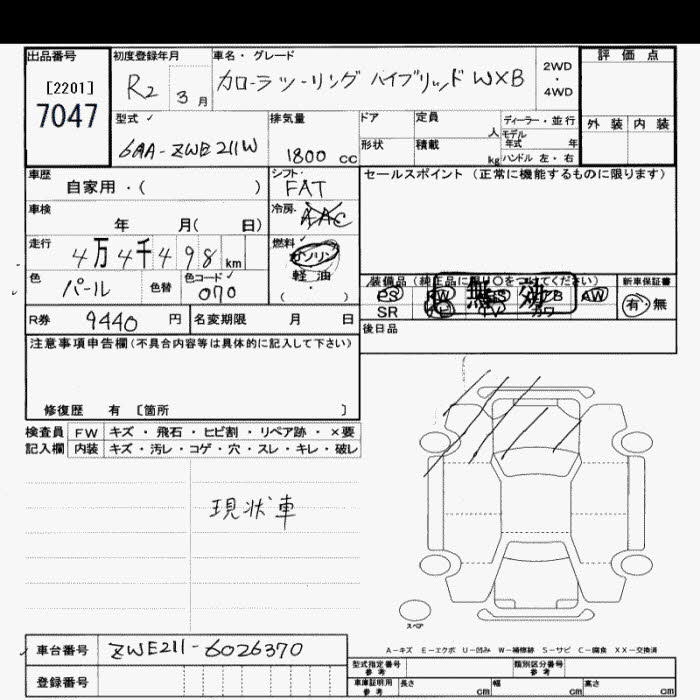 出品番号 初度登録年月 車名・グレード 評価点
[2201]
7047
R2 3月 カローラツーリング ハイブリッド WXB 2WD・4WD
型式 排気量 ドア 定員 人 ディーラー・並行 外装 内装
6AA-ZWE211W 1800 cc 形状 積載 kg モデル年式 年 ハンドル 左・右
車歴 シフト セールスポイント(正常に機能するものに限ります)
自家用・( ) FAT
車検 年 月( 日) 冷房 AAC
走行 4万4千498km 燃料 ガソリン
軽油
( ・ )
色 パール 色替 色コード 070
装備品(純正品に限り○をつけてください) 新車保証書
PS PW AB AW 有・無
無効
SR TV カワ
R券 9440 円 名変期限 月 日 後日品
注意事項申告欄(不具合内容等は具体的に記入して下さい)
修復歴 有 [箇所 ]
検査員 FW キズ・飛石・ヒビ割・リペア跡・×要
記入欄 内装 キズ・汚レ・コゲ・穴・スレ・キレ・破レ
現状車
スペア
A-キズ E-エクボ U-凹み W-補修跡 S-サビ C-腐食 XX-交換済
車台番号 ZWE211-6026370
登録番号
型式指定番号 参考 類別区分番号 参考
車庫証明用 参考 長さ cm 幅 cm 高さ cm